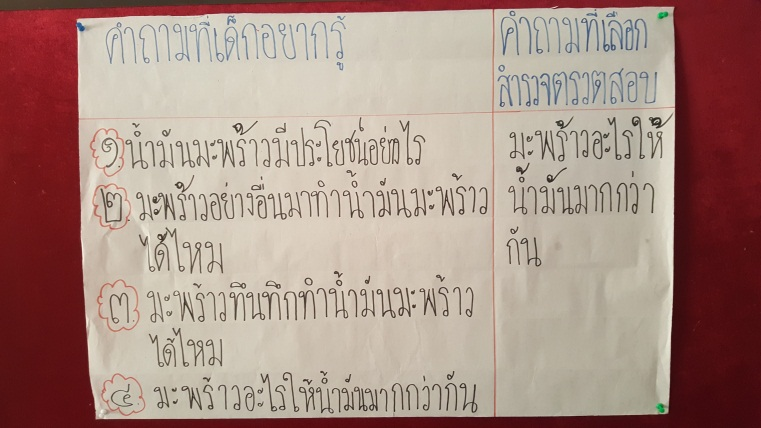 คำถามที่เด็กอยากรู้
คำถามที่เลือก
สำรวจตรวตสอบ
๑. น้ำมันมะพร้าวมีประโยชน์อย่างไร
๒. มะพร้าวอย่างอื่นมาทำน้ำมันมะพร้าว
ได้ไหม
๓. มะพร้าวทึนทึกทำน้ำมันมะพร้าว
ได้ไหม
๔. มะพร้าวอะไรให้น้ำมันมากกว่ากัน
มะพร้าวอะไรให้
น้ำมันมากกว่า
กัน